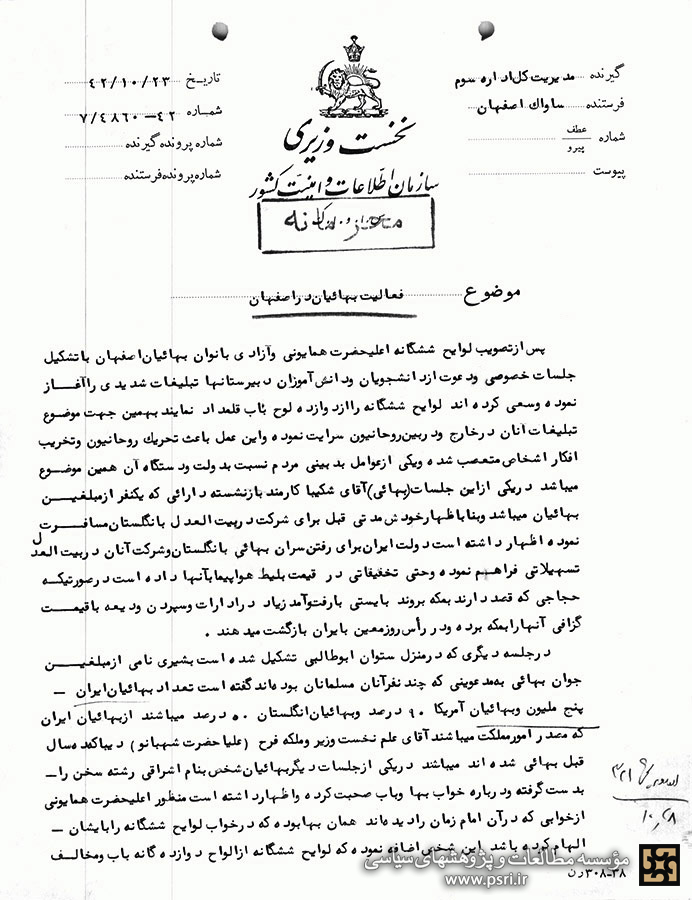 گیرنده مدیریت کل اداره سوم
فرستنده ساواک اصفهان
شماره عطف
پیرو
پیوست
نخست وزیری
سازمان اطلاعات و امنیت کشور
تاریخ ۴۲/۱۰/۲۳
شماره ۷/۴۸۶۰-۴۲
شماره پرونده گیرنده
شماره پرونده فرستنده
موضوع فعالیت بهائیان در اصفهان
پس از تصویب لوایح ششگانه اعلیحضرت همایونی وآزادی بانوان بهائیان اصفهان با تشکیل
جلسات خصوصی ودعوت از دانشجویان ودانش آموزان دبیرستانها تبلیغات شدیدی را آغاز
نموده وسعی کرده اند لوایح ششگانه را از دوازده لوح باب قلمداد نمایند بهمین جهت موضوع
تبلیغات آنان در خارج ودر بین روحانیون سرایت نموده واین عمل باعث تحریک روحانیون وتخریب
افکار اشخاص متعصب شده ویکی از عوامل بدبینی مردم نسبت بدولت ودستگاه آن همین موضوع
میباشد دریکی از این جلسات (بهائی) آقای شکیبا کارمند بازنشسته دارائی که یکنفر از مبلغین
بهائیان میباشد وبنا باظهار خودش مدتی قبل برای شرکت در بیت العدل بانگلستان مسافرت
نموده اظهار داشته است دولت ایران برای رفتن سران بهائی بانگلستان وشرکت آنان در بیت العدل
تسهیلاتی فراهم نموده وحتی تخفیفاتی در قیمت بلیط هواپیما بآنها داده است در صورتیکه
حجاجی که قصد دارند بمکه بروند بایستی با رفت وآمد زیاد در ادارات وسپردن ودیعه با قیمت
گزافی آنها را بمکه برده ودر رأس روز معین بایران بازگشت میدهند .
در جلسه دیگری که در منزل ستوان ابوطالبی تشکیل شده است بشیری نامی از مبلغین
جوان بهائی به مدعوینی که چند نفر آنان مسلمانان بوده اند گفته است تعداد بهائیان ایران -
پنج ملیون وبهائیان آمریکا ۹۰ درصد وبهائیان انگلستان ۵۰ درصد میباشند از بهائیان ایران
که مصدر امور مملکت میباشند آقای علم نخست وزیر وملکه فرح (علیا حضرت شهبانو) دیباکه سال
قبل بهائی شده اند میباشد دریکی از جلسات دیگر بهائیان شخصی بنام اشراقی رشته سخن را -
بدست گرفته ودرباره خواب بها وباب صحبت کرده واظهار داشته است منظور اعلیحضرت همایونی
از خوابی که در آن امام زمان را دیده اند همان بها بوده که در خواب لوایح ششگانه را بایشان -
الهام کرده باشد این شخص اضافه نموده که لوایح ششگانه از الواح دوازده گانه باب ومخالف
۳۲۱
۱۰/۲۸
۳۰۸-۳۸ ر ن
مؤسسه مطالعات و پژوهشهای سیاسی
www.psri.ir